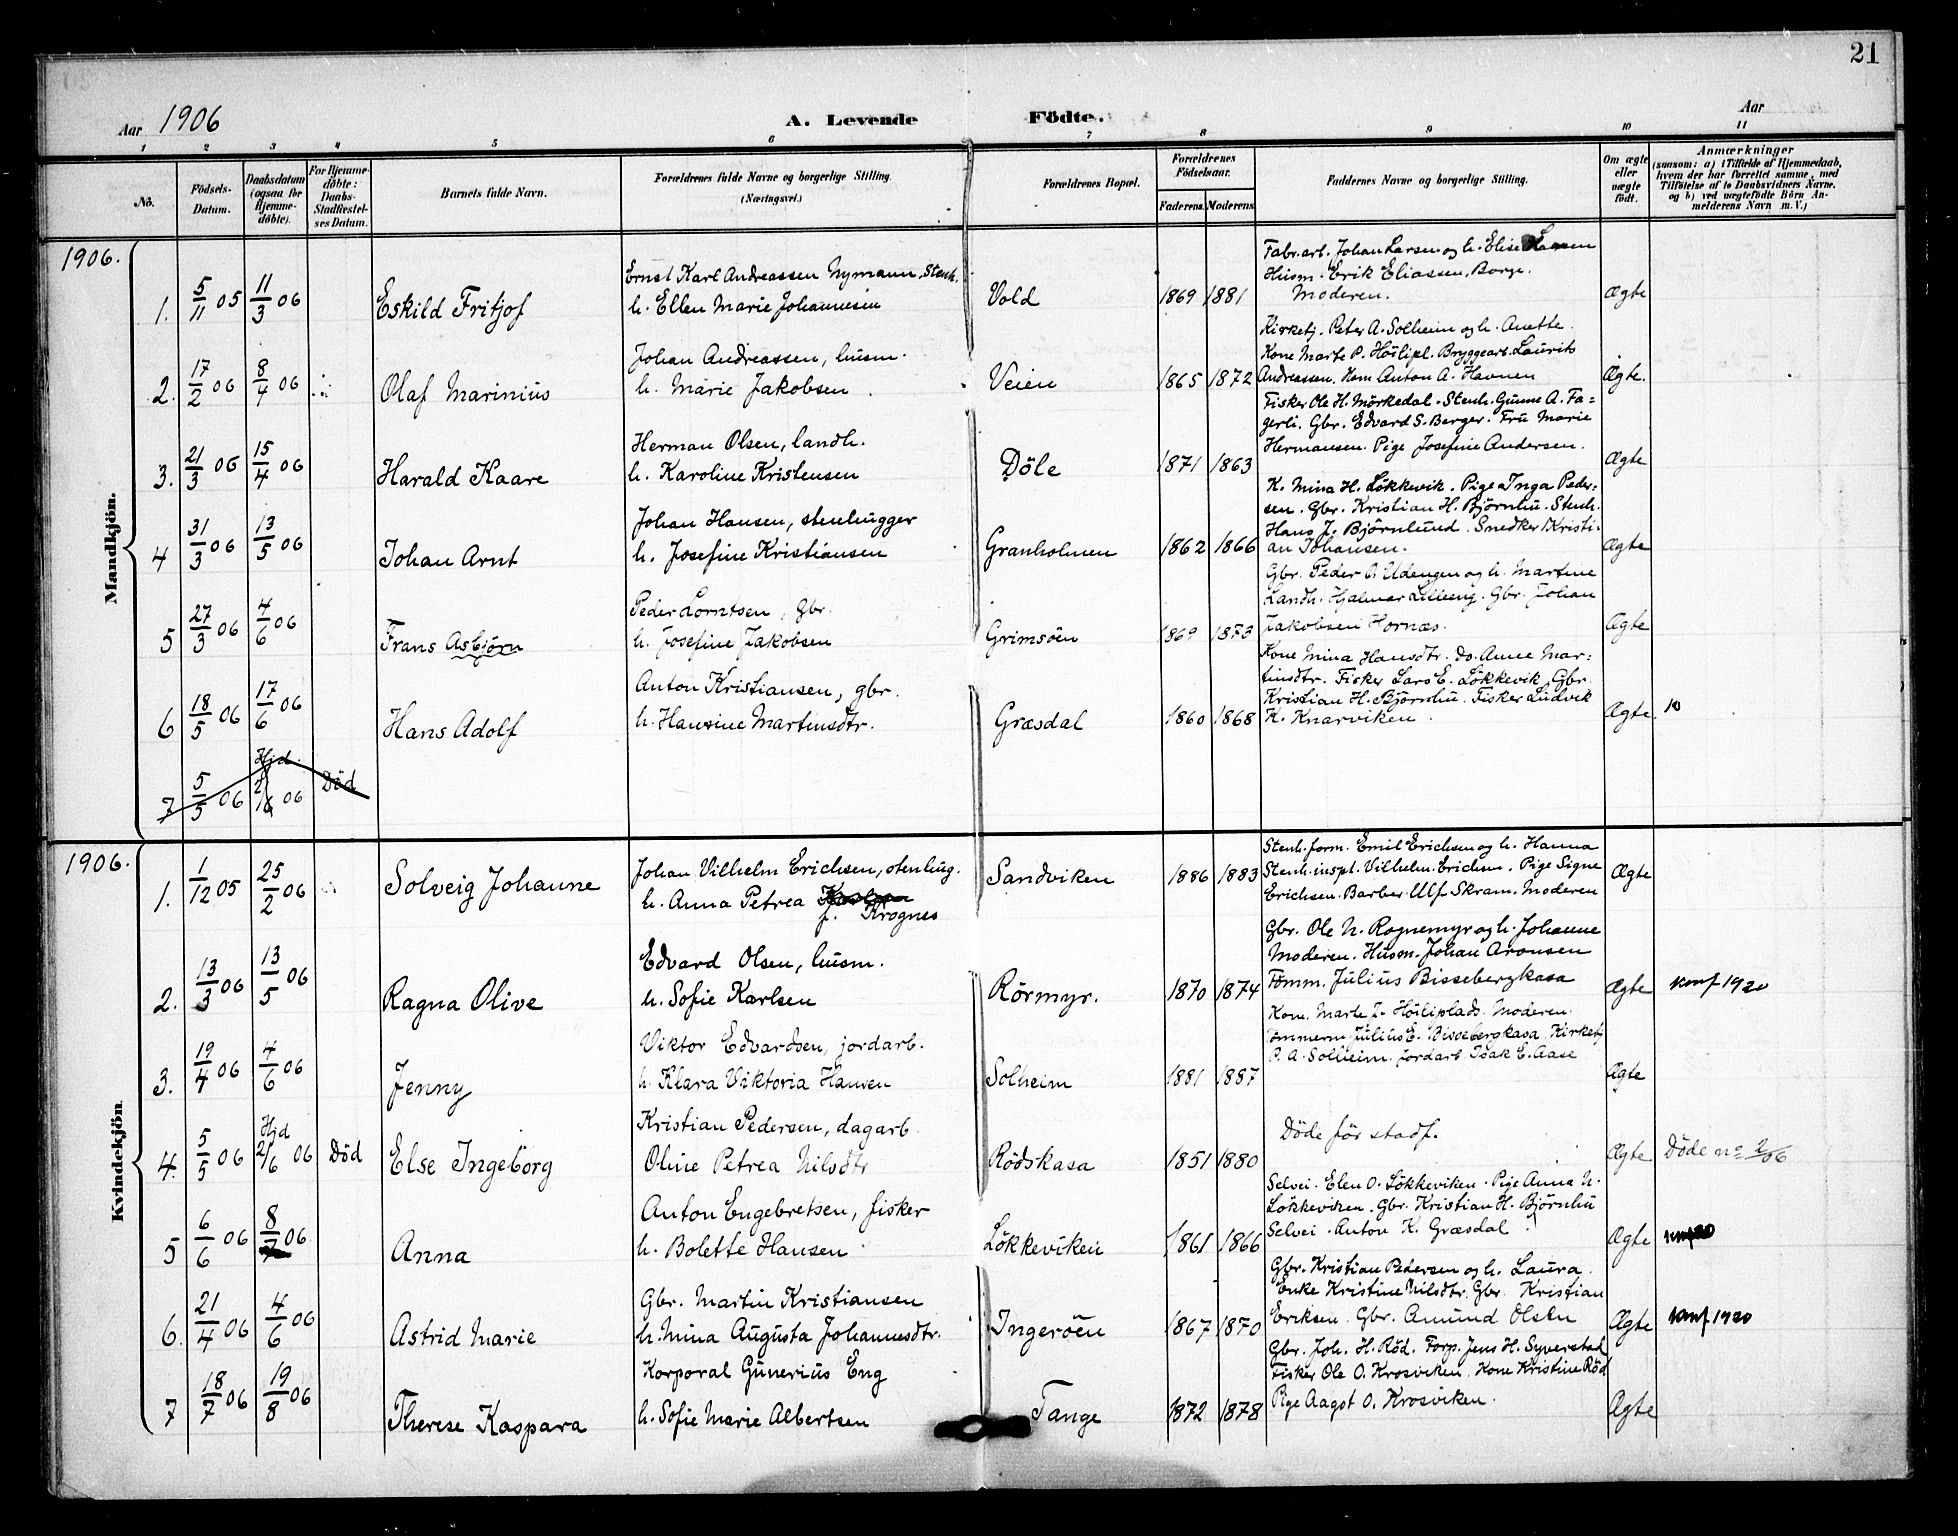 21
Aar 1906 A. Levende Födte. Aar
1 2 3 4 5 6 7 8 9 10 11
No.
Födsels-Datum.
Daabsdatum (ogsaa for Hjemme-döbte).
For Hjemme-döbte: Daabs-Stadfæstel-ses Datum.
Barnets fulde Navn.
Forældrenes fulde Navne og borgerlige Stilling. (Næringsvei.)
Forældrenes Bopæl.
Forældrenes Födselsaar.
Faderens. Moderens.
Faddernes Navne og borgerlige Stilling.
Om ægte eller uægte födt.
Anmærkninger
(saasom: a) i Tilfælde af Hjemmedaab,
hvem der har forrettet samme, med
Tilföielse af to Daabsvidners Navne.
og b) ved uægtefödte Börn An-
melderens Navn m. V.)
Mandkjön.
1906.
1. 5/11 05 11/3 06 Eskild Fritjof
Ernst Karl Andreassen Nymann, Stenh.
h. Ellen Marie Johannesen
Vold 1869 1881
Fabr.arb. Johan Larsen og h. Elise Larsen
Husm. Erik Eliassen, Borge.
Moderen.
Ægte
2. 17/2 06 8/4 06 Olaf Marinius
Johan Andreassen, husm.
h. Marie Jakobsen
Veien 1865 1872
Kirketj. Peter A. Solheim og h. Anette.
Kone Marte P. Höilipl. Bryggearb. Laurits
Andreassen. Hom Anton A. Havnen
Ægte.
3. 21/3 06 15/4 06 Harald Kaare
Herman Olsen, landh.
h. Karoline Kristensen
Döle 1871 1863
Fisker Ole H. Mörkedal. Stenh. Gunne A. Fa=
gerli. Gbr. Edvard S. Berger. Fru Marie
Hermansen. Pige Josefine Andersen.
Ægte
4 31/3 06 13/5 06 Johan Arnt
Johan Hansen, stenhugger
h. Josefine Kristiansen
Granholmen 1862 1866
K. Mina H. Lökkevik. Pige Inga Peder=
sen. Gbr. Kristian H. Björnhu. Stenh.
Hans J. Björnlund. Snedker Kristi-
an Johansen.
Ægte
5 27/3 06 4/6 06 Frans Asbjörn
Peder Lorntsen, Gbr.
h. Josefine Jakobsen
Grimsöen 1869 1873
Gbr. Peder A Udengen og h. Martine
Landh. Hjalmar Lilleeng. Gbr. Johan
Jakobsen Hornæs.
Ægte
6 18/5 06 17/6 06 Hans Adolf
Anton Kristiansen, gbr.
h. Hansine Martinsdtr.
Græsdal 1860 1868
Kone Mina Hansdtr. Do. Anne Mar=
tinsdtr. Fisker Lars E. Lökkevik. Gbr.
Kristian H. Björnhu. Fisker Ludvik
K. Knarviken.
Ægte 10
7 5/5 06 Hjd. 2/6 06 Död
Kvindekjön
1906.
1. 1/12 05 25/2 06 Solveig Johanne
Johan Vilhelm Erichsen, stenhug.
h. Anna Petrea
f. Krognes
Sandviken 1886 1883
Stenh.form. Emil Erichsen og h. Hanna
Stenh.inspt. Vilhelm Erichsen. Pige Signe
Erichsen. Barber Ulf Skram. Moderen
Ægte
2. 13/3 06 13/5 06 Ragna Olive
Edvard Olsen, husm.
h. Sofie Karlsen
Rörmyr. 1870 1874
Gbr. Ole N. Rognemyr og h. Johanne
Moderen. Husm. Johan Aronsen
Tömm. Julius Bissebergkasa
Ægte konf 1920
3. 19/4 06 4/6 06 Jenny
Viktor Edvardsen, jordarb.
h. Klara Viktoria Hansen
Solheim 1881 1887
Kone. Marte J. Höiliplads. Moderen.
Tömmerm. Julius E. Bissebergkasa. Kirketj
P. A. Solheim. jordarb Isak E. Aase
Ægte
4. 5/5 06 Hjd 2/6 06 Död Else Ingeborg
Kristian Pedersen, dagarb.
Oline Petrea Nilsdtr
Rödskasa 1851 1880
Döde för stadf.
Ægte Döde no 2/06
5 6/6 06 8/7 06 Anna
Anton Engebretsen, fisker
h. Bolette Hansen
Lökkeviken 1861 1866
Selvei. Elen O. Lökkeviken. Pige Anna N.
Lökkeviken. Gbr. Kristian H. Björnhu
Selvei. Anton K. Græsdal
Ægte
6. 21/4 06 4/6 06 Astrid Marie
Gbr. Martin Kristiansen
h. Mina Augusta Johannesdtr.
Ingeröen 1867 1870
Gbr. Kristian Pedersen og h. Laura.
Enke Kristine Nilsdtr. Gbr. Kristian
Eriksen. Gbr. Amund Olsen
Ægte konf 1920
7 18/7 06 19/8 06 Therese Kaspara
Korporal Gunerius Eng
h. Sofie Marie Albertsen
Tange 1872 1878
Gbr. Joh. H. Röd. Forp. Jens H. Syverstad
Fisker Ole O. Krosviken. Kone Kristine Röd
Pige Aagot O. Krosviken.
Ægte